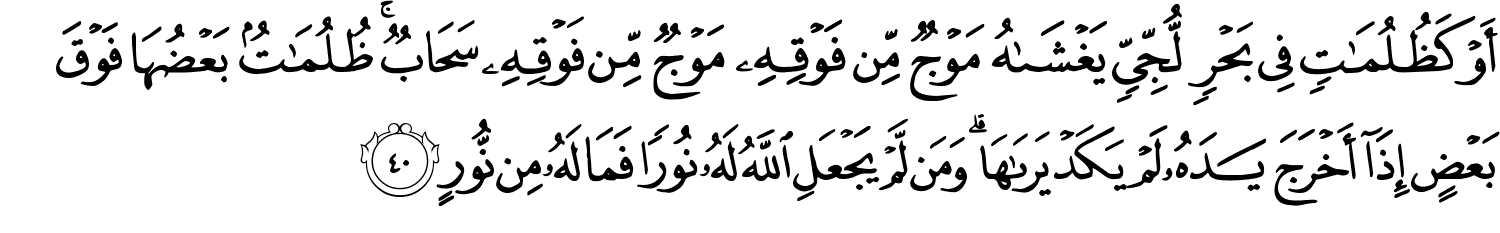 أَوْ كَظُلُمَـٰتٍ فِى بَحْرٍ لُّجِّىٍّ يَغْشَىٰهُ مَوْجٌ مِّن فَوْقِهِۦ مَوْجٌ مِّن فَوْقِهِۦ سَحَابٌ ۚ ظُلُمَـٰتٌۢ بَعْضُهَا فَوْقَ
بَعْضٍ إِذَآ أَخْرَجَ يَدَهُۥ لَمْ يَكَدْ يَرَىٰهَا ۗ وَمَن لَّمْ يَجْعَلِ ٱللَّهُ لَهُۥ نُورًا فَمَا لَهُۥ مِن نُّورٍ ٤٠